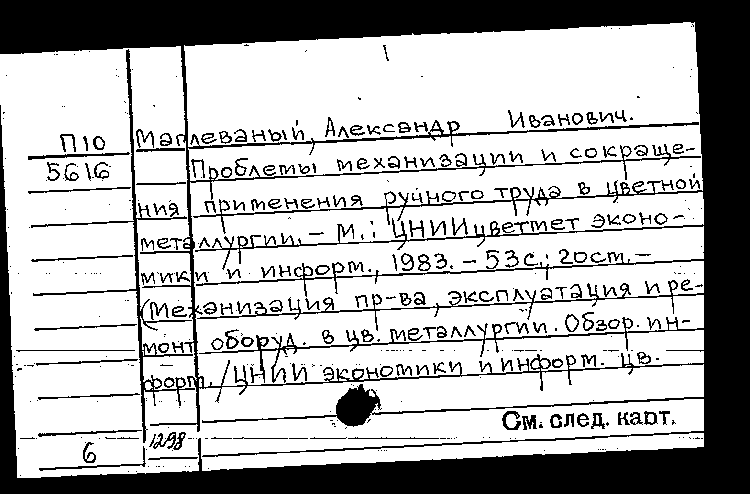 П10 Маглеваный, Александр Иванович.
5616 Проблемы механизации и сокраще-
ния применения ручного труда в цветной
металлургии. – М.: ЦНИИцветмет эконо-
мики и информ., 1983. – 53с.; 20см. –
(Механизация пр-ва, эксплуатация и ре-
монт оборуд. в цв. металлургии. Обзор. ин-
форм. / ЦНИИ экономики и информ. цв.
См. след. карт.
6 1298